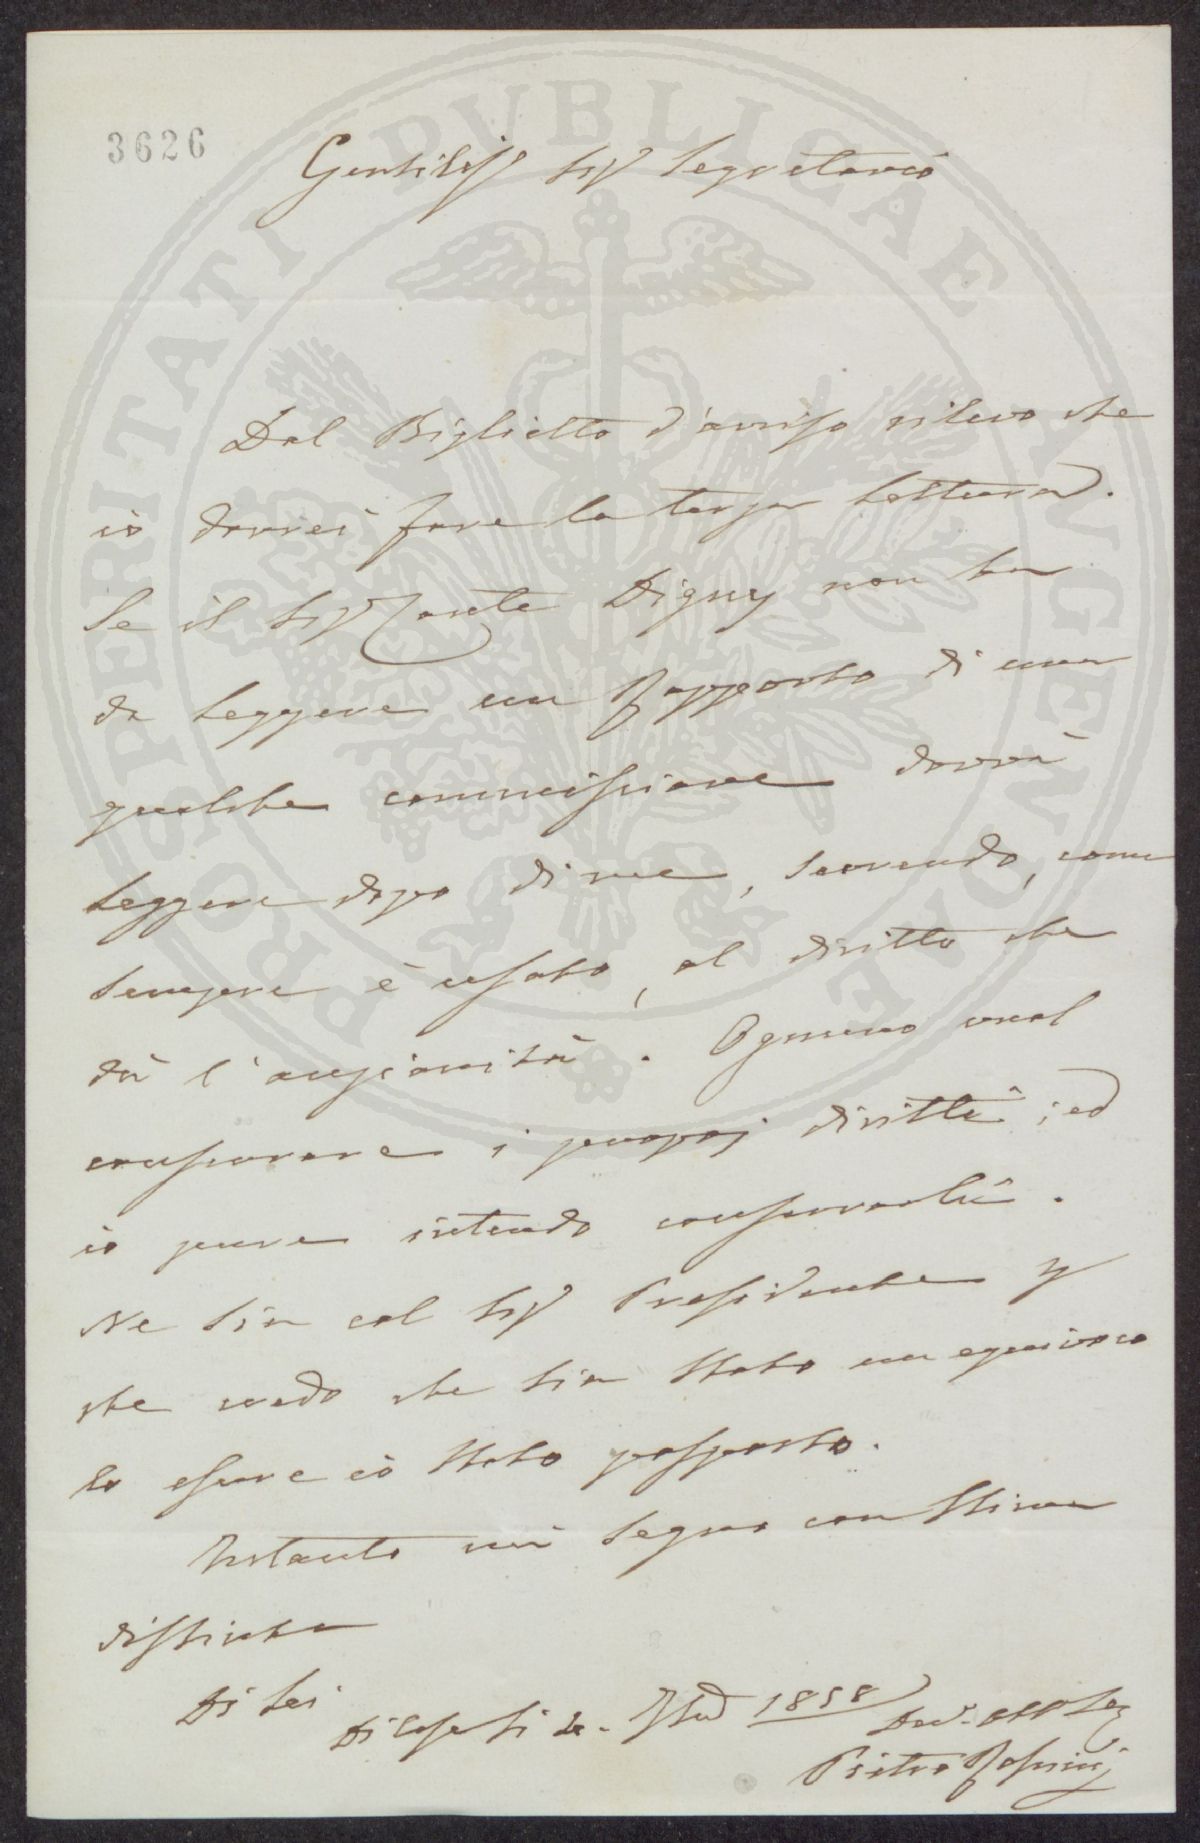 3626
PROSPERITATI PVBLICAE AVGENDAE
Gentiliss.o Sig.r Segretario
Dal Biglietto d'avviso rilevo che
io dovrei fare la terza Lettura.
Se il Sig.r Conte Digny non ha
da leggere un Rapporto di una
qualche commissione dovrà
leggere dopo di me, secondo, come
sempre è usato, al diritto che
dà l'anzianità. Ognuno vuol
conservare i proprj diritti; ed
io pure intendo conservarli.
Ne sia col Sig.r Presidente
che credo che sia stato un equivoco
lo essere io stato posposto.
Intanto mi segno con stima
distinta
Di Lei
Di Casa li 1858
Pietro